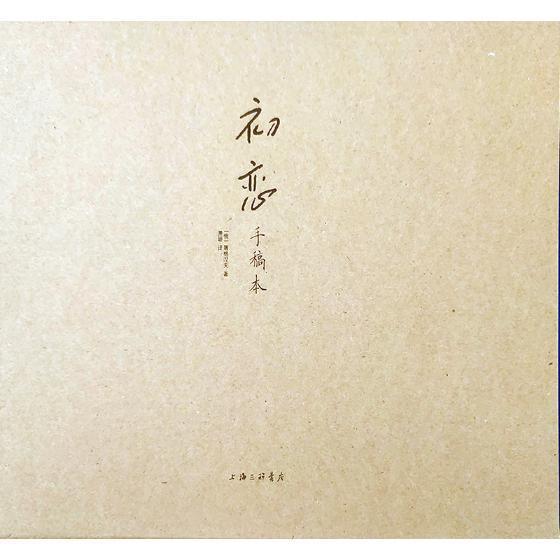 初恋
手稿本
［俄］屠格涅夫 著
萧珊 译
上海三联书店